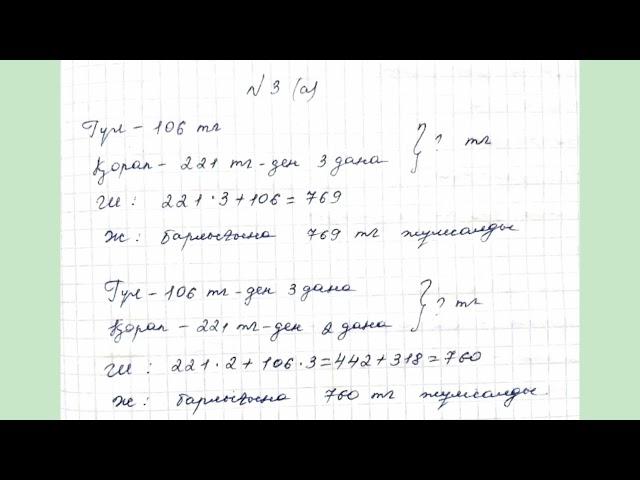 N 3 (а)
Гүл – 106 тг
Қорап – 221 тг-ден 3 дана } ? тг
Ш: 221·3+106=769
Ж: барлығына 769 тг жұмсалды
Гүл – 106 тг-ден 3 дана
Қорап – 221 тг-ден 2 дана } ? тг
Ш: 221·2+106·3=442+318=760
Ж: барлығына 760 тг жұмсалды.